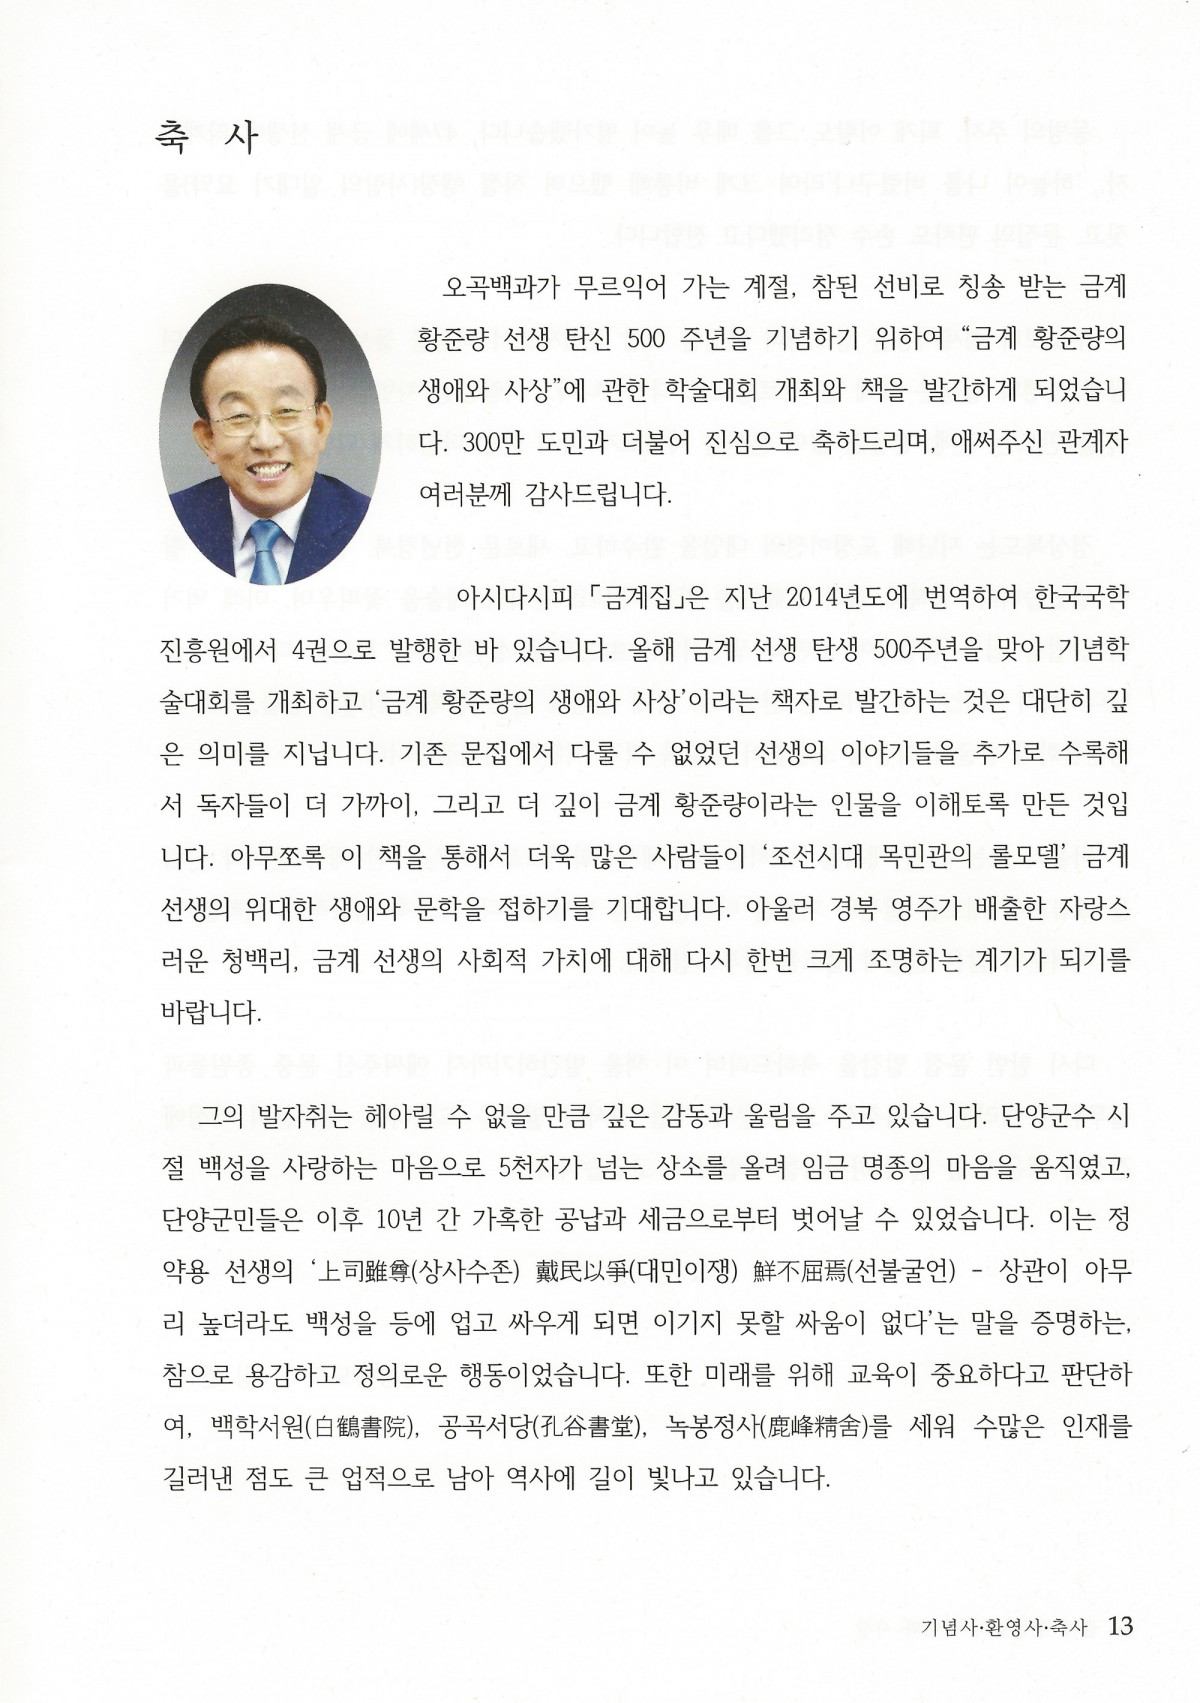 축 사
오곡백과가 무르익어 가는 계절, 참된 선비로 칭송 받는 금계
황준량 선생 탄신 500 주년을 기념하기 위하여 “금계 황준량의
생애와 사상”에 관한 학술대회 개최와 책을 발간하게 되었습니
다. 300만 도민과 더불어 진심으로 축하드리며, 애써주신 관계자
여러분께 감사드립니다.
아시다시피 「금계집」은 지난 2014년도에 번역하여 한국국학
진흥원에서 4권으로 발행한 바 있습니다. 올해 금계 선생 탄생 500주년을 맞아 기념학
술대회를 개최하고 ‘금계 황준량의 생애와 사상’이라는 책자로 발간하는 것은 대단히 깊
은 의미를 지닙니다. 기존 문집에서 다룰 수 없었던 선생의 이야기들을 추가로 수록해
서 독자들이 더 가까이, 그리고 더 깊이 금계 황준량이라는 인물을 이해토록 만든 것입
니다. 아무쪼록 이 책을 통해서 더욱 많은 사람들이 ‘조선시대 목민관의 롤모델’ 금계
선생의 위대한 생애와 문학을 접하기를 기대합니다. 아울러 경북 영주가 배출한 자랑스
러운 청백리, 금계 선생의 사회적 가치에 대해 다시 한번 크게 조명하는 계기가 되기를
바랍니다.
그의 발자취는 헤아릴 수 없을 만큼 깊은 감동과 울림을 주고 있습니다. 단양군수 시
절 백성을 사랑하는 마음으로 5천자가 넘는 상소를 올려 임금 명종의 마음을 움직였고,
단양군민들은 이후 10년 간 가혹한 공납과 세금으로부터 벗어날 수 있었습니다. 이는 정
약용 선생의 ‘上司雖尊(상사수존) 戴民以爭(대민이쟁) 鮮不屈焉(선불굴언) – 상관이 아무
리 높더라도 백성을 등에 업고 싸우게 되면 이기지 못할 싸움이 없다’는 말을 증명하는,
참으로 용감하고 정의로운 행동이었습니다. 또한 미래를 위해 교육이 중요하다고 판단하
여, 백학서원(白鶴書院), 공곡서당(孔谷書堂), 녹봉정사(鹿峰精舍)를 세워 수많은 인재를
길러낸 점도 큰 업적으로 남아 역사에 길이 빛나고 있습니다.
기념사·환영사·축사 13